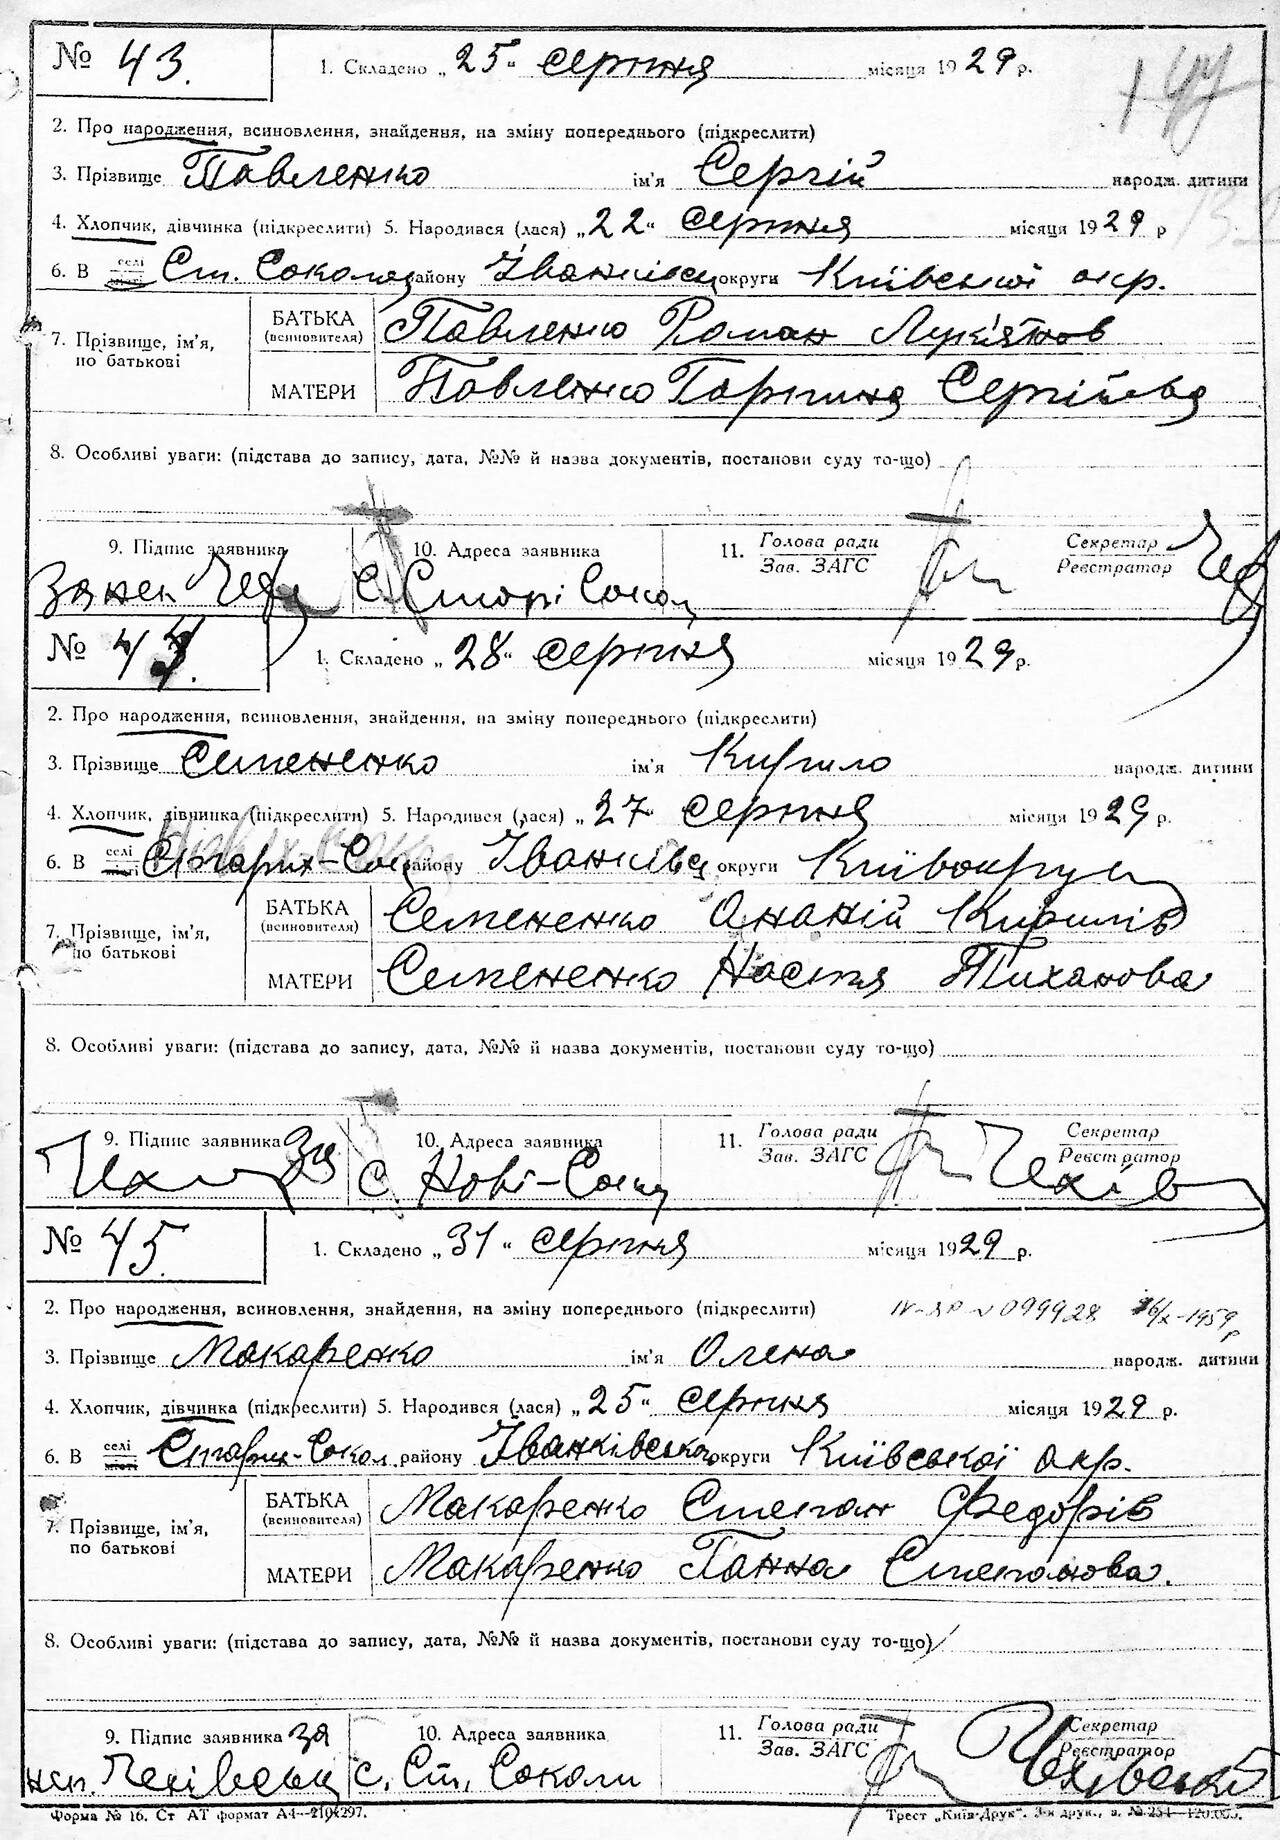 № 43. 1. Складено „25“ серпня місяця 1929 р.
2. Про народження, всиновлення, знайдення, на зміну попереднього (підкреслити)
3. Прізвище Павленко ім'я Сергій народж. дитини
4. Хлопчик, дівчинка (підкреслити) 5. Народився (лася) „22“ серпня місяця 1929 р
6. В селі Ст. Соколах району Іванківськ округи Київської окр.
7. Прізвище, ім'я, по батькові БАТЬКА (всиновителя) Павленко Роман Лук'янов
МАТЕРИ Павленко Горпина Сергійва
8. Особливі уваги: (підстава до запису, дата, №№ й назва документів, постанови суду то-що)
9. Підпис заявника 10. Адреса заявника 11. Голова ради Секретар
Зав. ЗАГС. Реєстратор
с. Старі Сокол
№ 44. 1. Складено „28“ серпня місяця 1929 р.
2. Про народження, всиновлення, знайдення, на зміну попереднього (підкреслити)
3. Прізвище Семененко ім'я Кирило народж. дитини
4. Хлопчик, дівчинка (підкреслити) 5. Народився (лася) „27“ серпня місяця 1929 р.
6. В селі Старих-Сок району Іванківськ округи Київокруги
7. Прізвище, ім'я, по батькові БАТЬКА (всиновителя) Семененко Ананій Кирилів
МАТЕРИ Семененко Настя Тиханова
8. Особливі уваги: (підстава до запису, дата, №№ й назва документів, постанови суду то-що)
9. Підпис заявника За 10. Адреса заявника 11. Голова ради Секретар
Зав. ЗАГС. Реєстратор
с. Нові-Сокол Чехівс
№ 45. 1. Складено „31“ серпня місяця 1929 р.
2. Про народження, всиновлення, знайдення, на зміну попереднього (підкреслити) № 099928 1959 р
3. Прізвище Макаренко ім'я Олена народж. дитини
4. Хлопчик, дівчинка (підкреслити) 5. Народився (лася) „25“ серпня місяця 1929 р.
6. В селі Старих-Сокол району Іванківська округи Київської окр.
7. Прізвище, ім'я, по батькові БАТЬКА (всиновителя) Макаренко Степан Федорів
МАТЕРИ Макаренко Ганна Степанова.
8. Особливі уваги: (підстава до запису, дата, №№ й назва документів, постанови суду то-що)
9. Підпис заявника за 10. Адреса заявника 11. Голова ради Секретар
Зав. ЗАГС. Реєстратор
неп. Чехівськ с. Ст. Соколи Чехівський
Форма № 16. Ст АТ формат А4—210×297. Трест „Київ-Друк“. 3-я друк., з. № 254—120.005.